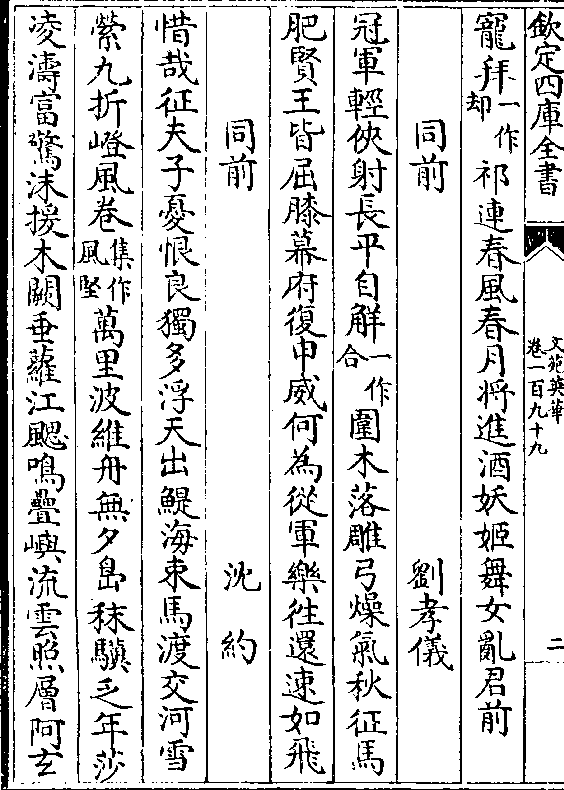 欽定四庫全書
文苑英華
卷一百九十九
二
寵拜一作却祁連春風春月將進酒妖姬舞女亂君前
同前 劉孝儀
冠軍輕俠射長平自解一作合圍木落雕弓燥氣秋征馬
肥賢王皆屈膝幕府復申威何為從軍樂徃還速如飛
同前 沈約
惜哉征夫子憂恨良獨多浮天出鯷海束馬渡交河雪
縈九折嶝風卷集作風堅萬里波維舟無夕島秣驥乏年莎
凌濤富驚沫援木闕垂蘿江飔鳴疊嶼流雲照層阿玄